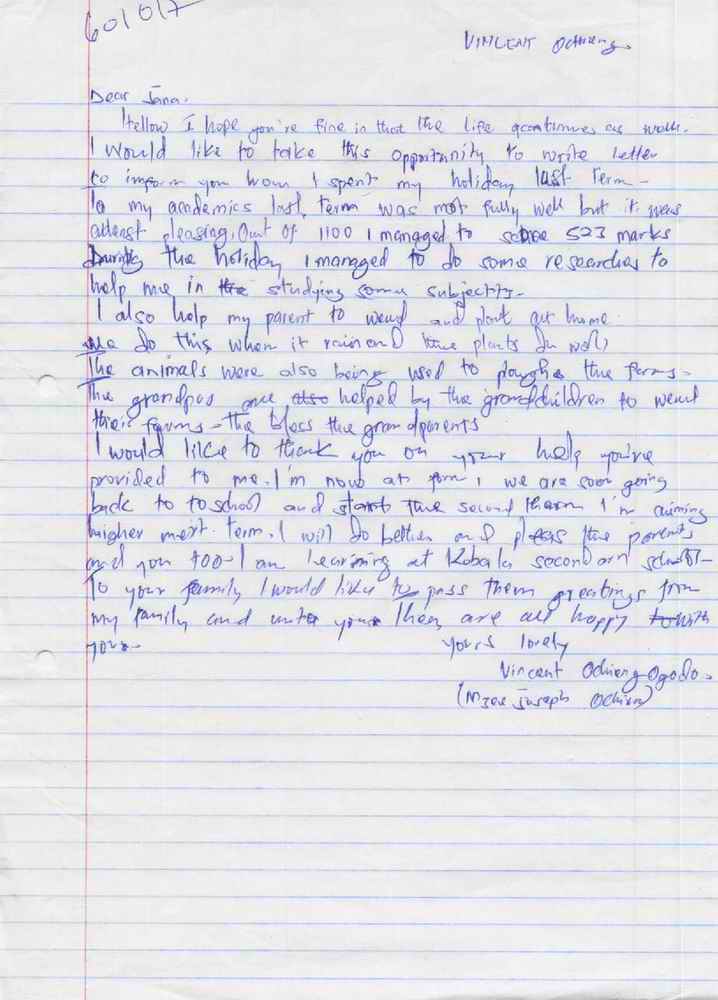 601017
VINCENT Ochieng.
Dear Jana.
Hellow I hope you're fine in that the life continues as well.
I would like to take this opportunity to write letter
to inform you how I spent my holiday last term-
In my academics last term was not fully well but it was
atleast pleasing. Out of 1100 I managed to score 523 marks
During the holiday I managed to do some researches to
help me in the studying some subjects.
I also help my parent to weed and plant at home
we do this when it rain and the plants do well
The animals were also being used to plough the farms-
the grandpas are also helped by the grandchildren to weed
their farms- the bless the grandparents
I would like to thank you on your help you've
provided to me. I'm now at form 1 we are soon going
back to to school and start the second therm I'm aiming
higher next term. I will do better and pleas the parents
and you too- I am learning at Kobala secondary school-
To your family I would like to pass them greetings from
my family and they are all happy to with
your-
Yours lovely
Vincent Ochieng Ogodo.
(Joseph Ochieng)